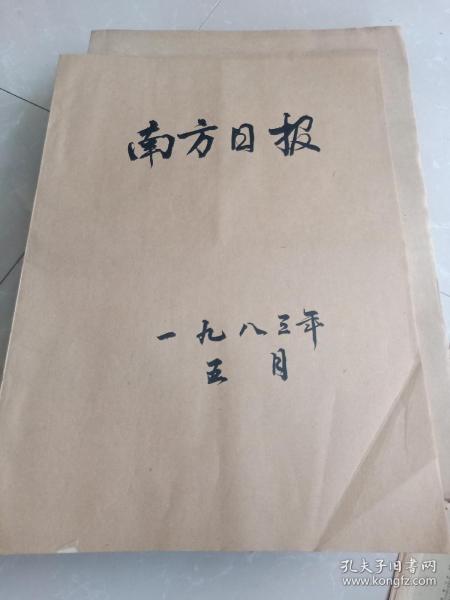 南方日报
一九八三年
五月
孔夫子旧书网
www.kongfz.com